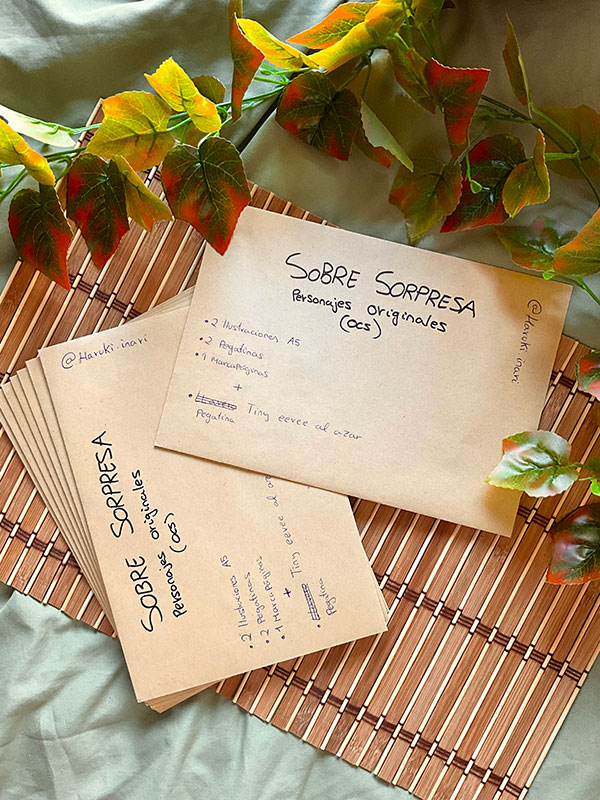 SOBRE SORPRESA
Personajes originales
(ocs)
@Haruki.inari
• 2 Ilustraciones A5
• 2 Pegatinas
• 1 MarcaPáginas
+
• Tiny eevee al azar
Pegatina
@Haruki.inari
SOBRE SORPRESA
Personajes originales
(ocs)
• 2 Ilustraciones A5
• 2 Pegatinas
• 1 MarcaPáginas
+
• Tiny eevee al az
Pegatina